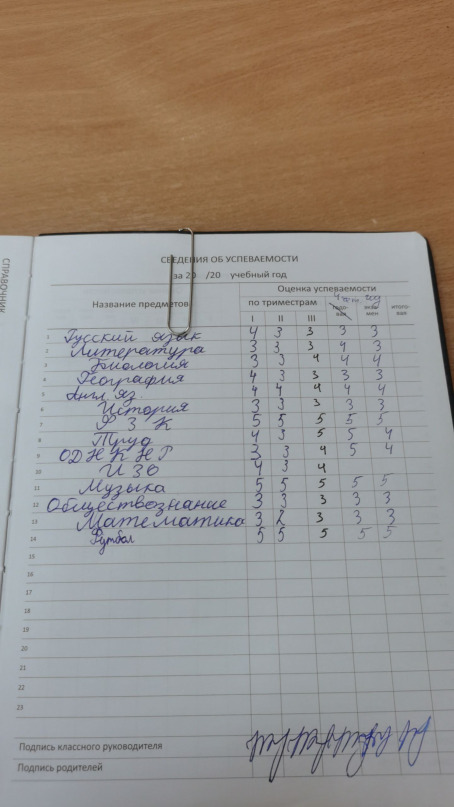 СПРАВОЧНИК
СВЕДЕНИЯ ОБ УСПЕВАЕМОСТИ
за 20 /20 учебный год
Название предметов
Оценка успеваемости
по триместрам
4 год
I II III годо-вая экза-мен итого-вая
1 Русский язык 4 3 3 3 3
2 Литература 3 3 3 4 3
3 Биология 3 3 4 4 4
4 География 4 3 3 3 3
5 Англ яз. 4 4 4 4 4
6 История 3 3 3 3 3
7 ФЗК 5 5 5 5 5
8 Труд 4 3 5 5 4
9 ОДНКНР 3 3 4 5 4
10 ИЗО 4 3 4
11 Музыка 5 5 5 5 5
12 Обществознание 3 3 3 3 3
13 Математика 3 2 3 3 3
14 Футбол 5 5 5 5 5
15
16
17
18
19
20
21
22
23
Подпись классного руководителя
Подпись родителей